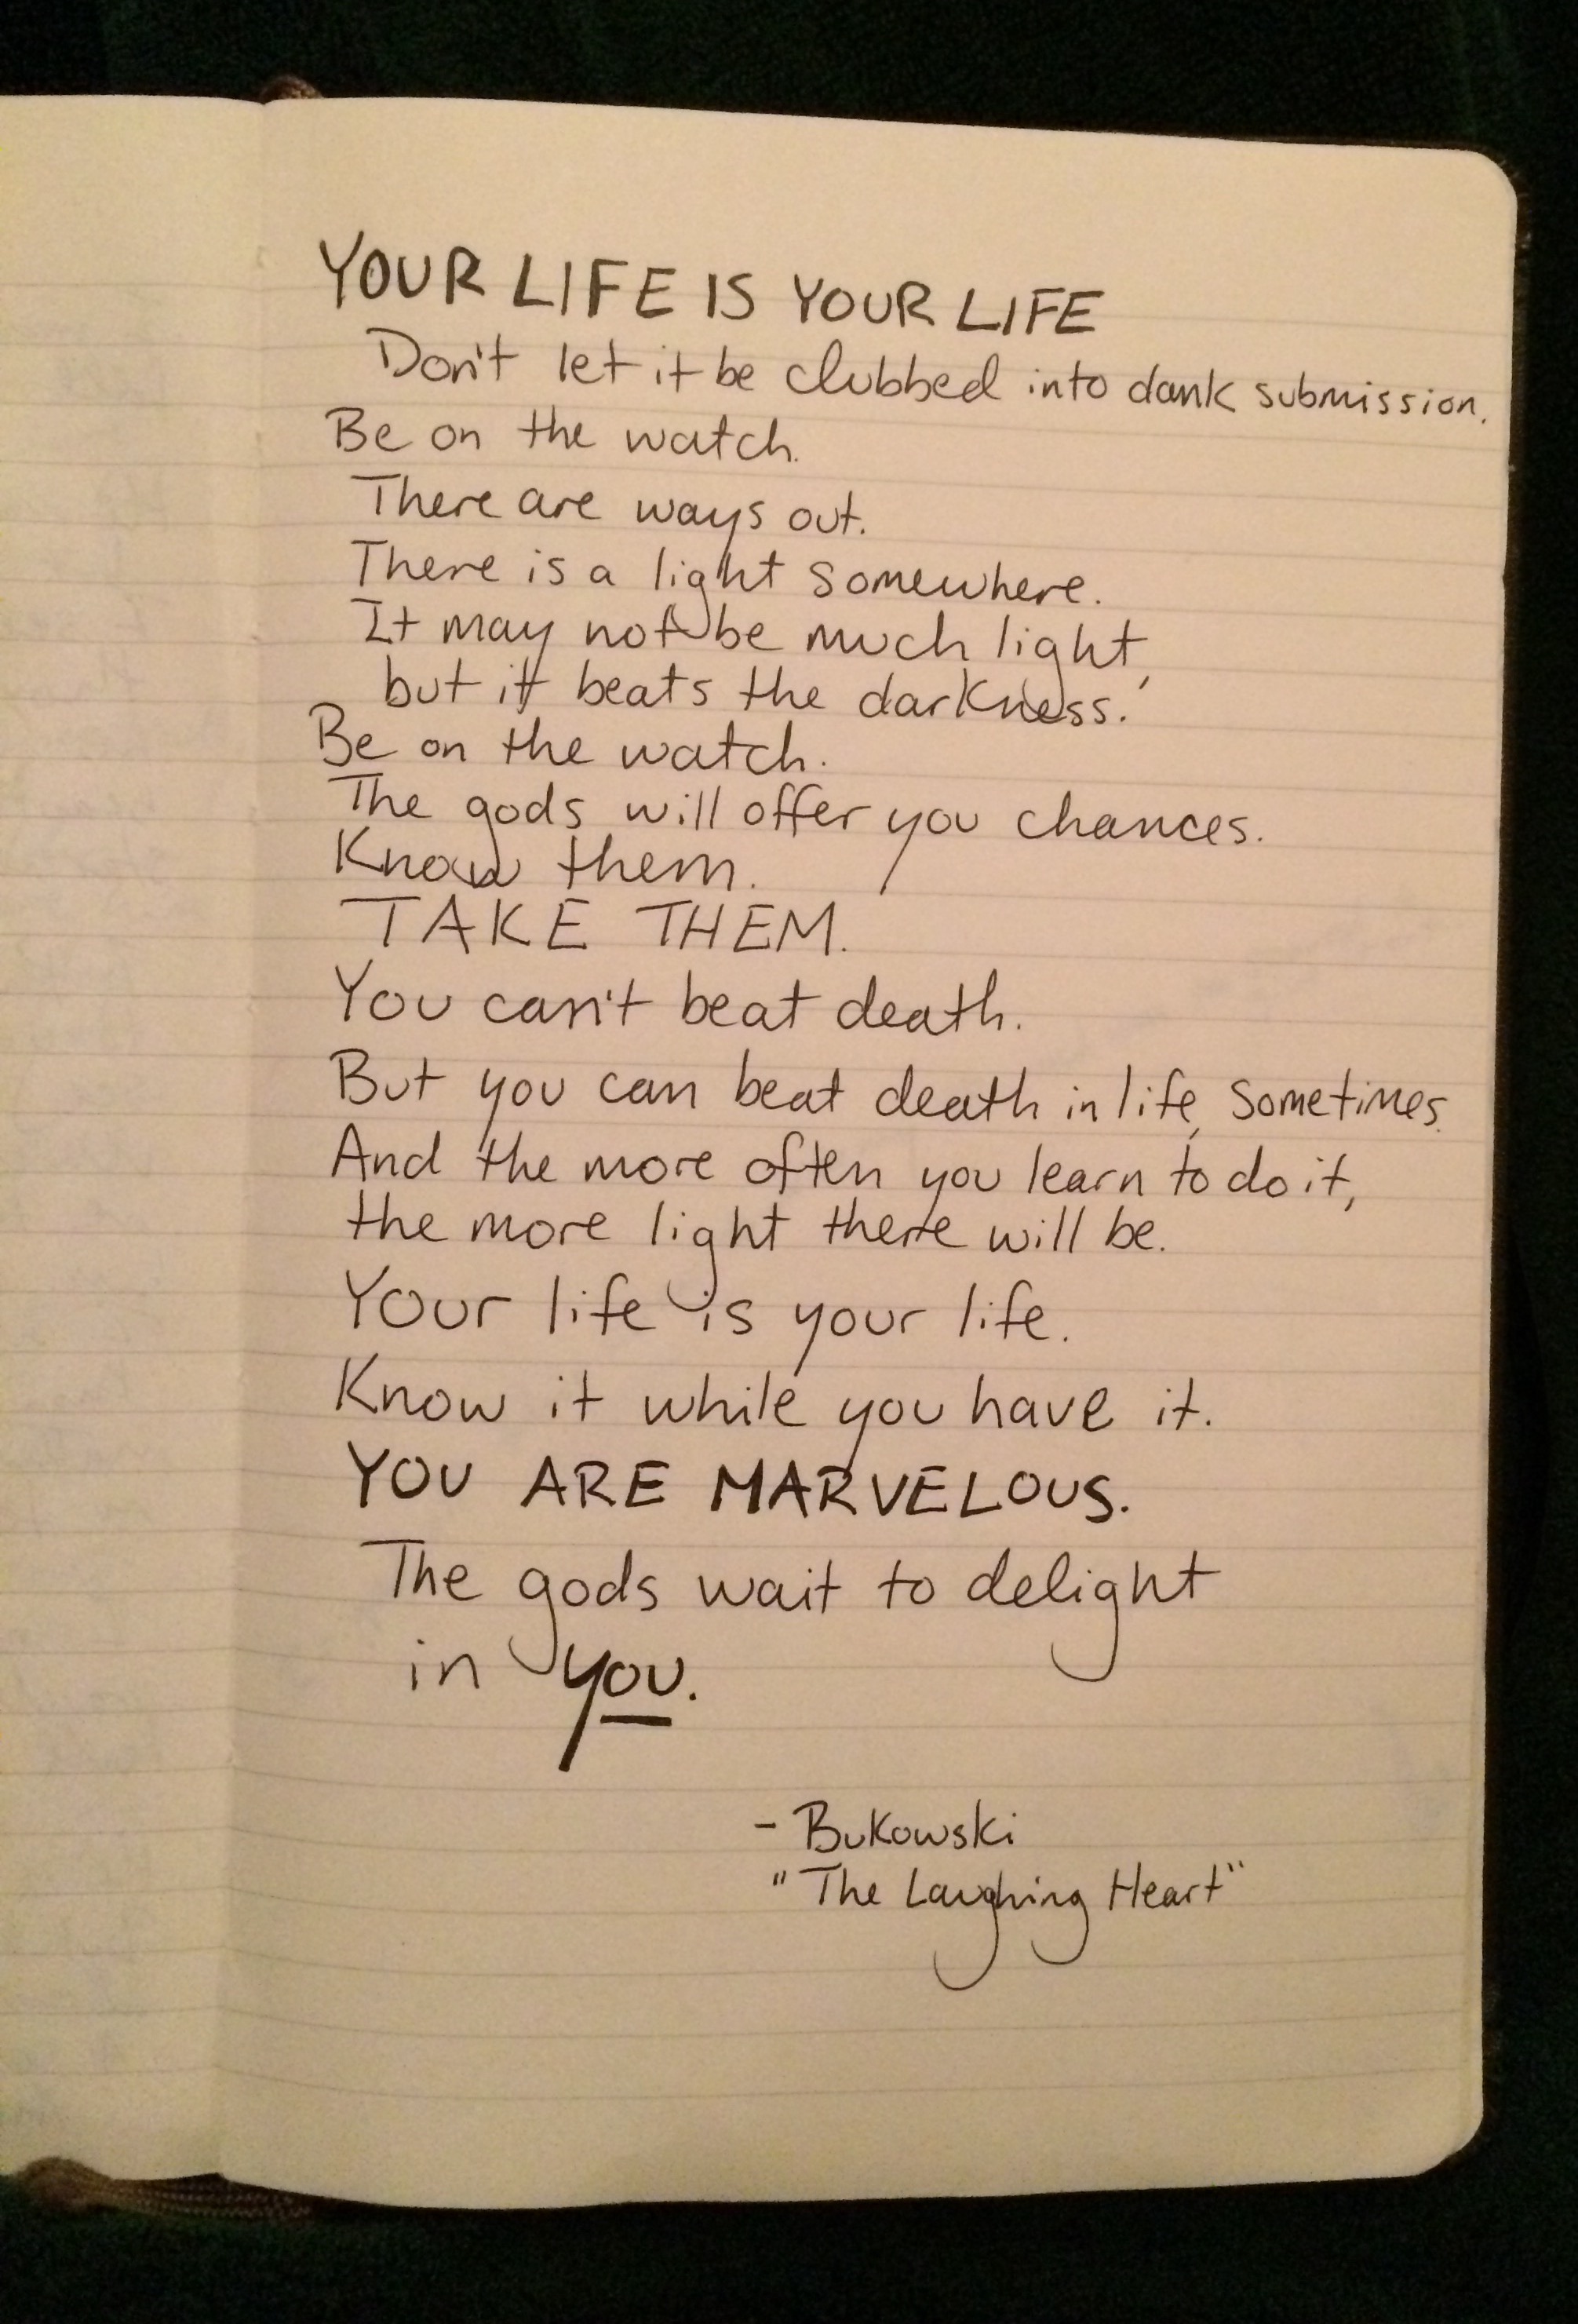 YOUR LIFE IS YOUR LIFE
Don't let it be clubbed into dank submission.
Be on the watch.
There are ways out.
There is a light somewhere.
It may not be much light,
but it beats the darkness.
Be on the watch.
The gods will offer you chances.
Know them.
TAKE THEM.
You can't beat death.
But you can beat death in life, sometimes.
And the more often you learn to do it,
the more light there will be.
Your life is your life.
Know it while you have it.
YOU ARE MARVELOUS.
The gods wait to delight
in you.
- Bukowski
"The Laughing Heart"